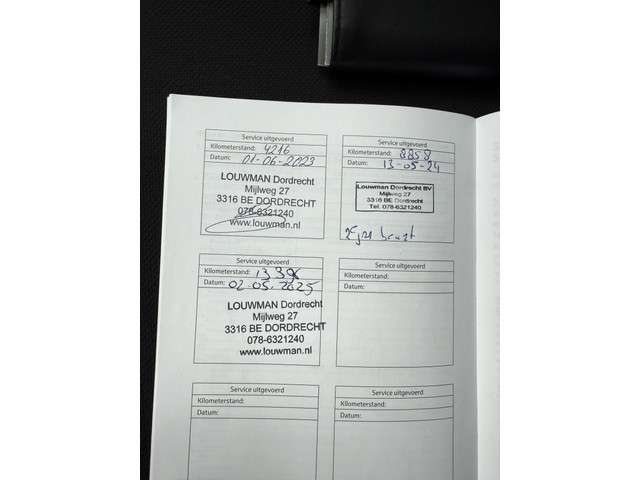 Service uitgevoerd
Kilometerstand: 4216
Datum: 01-06-2023
LOUWMAN Dordrecht
Mijlweg 27
3316 BE DORDRECHT
078-6321240
www.louwman.nl
Service uitgevoerd
Kilometerstand: 8858
Datum: 13-05-24
Louwman Dordrecht BV
Mijlweg 27
3316 BE Dordrecht
Tel. 078-6321240
Service uitgevoerd
Kilometerstand: 13396
Datum: 02.05.2025
LOUWMAN Dordrecht
Mijlweg 27
3316 BE DORDRECHT
078-6321240
www.louwman.nl
Service uitgevoerd
Kilometerstand:
Datum:
Service uitgevoerd
Kilometerstand:
Datum:
Service uitgevoerd
Kilometerstand:
Datum: